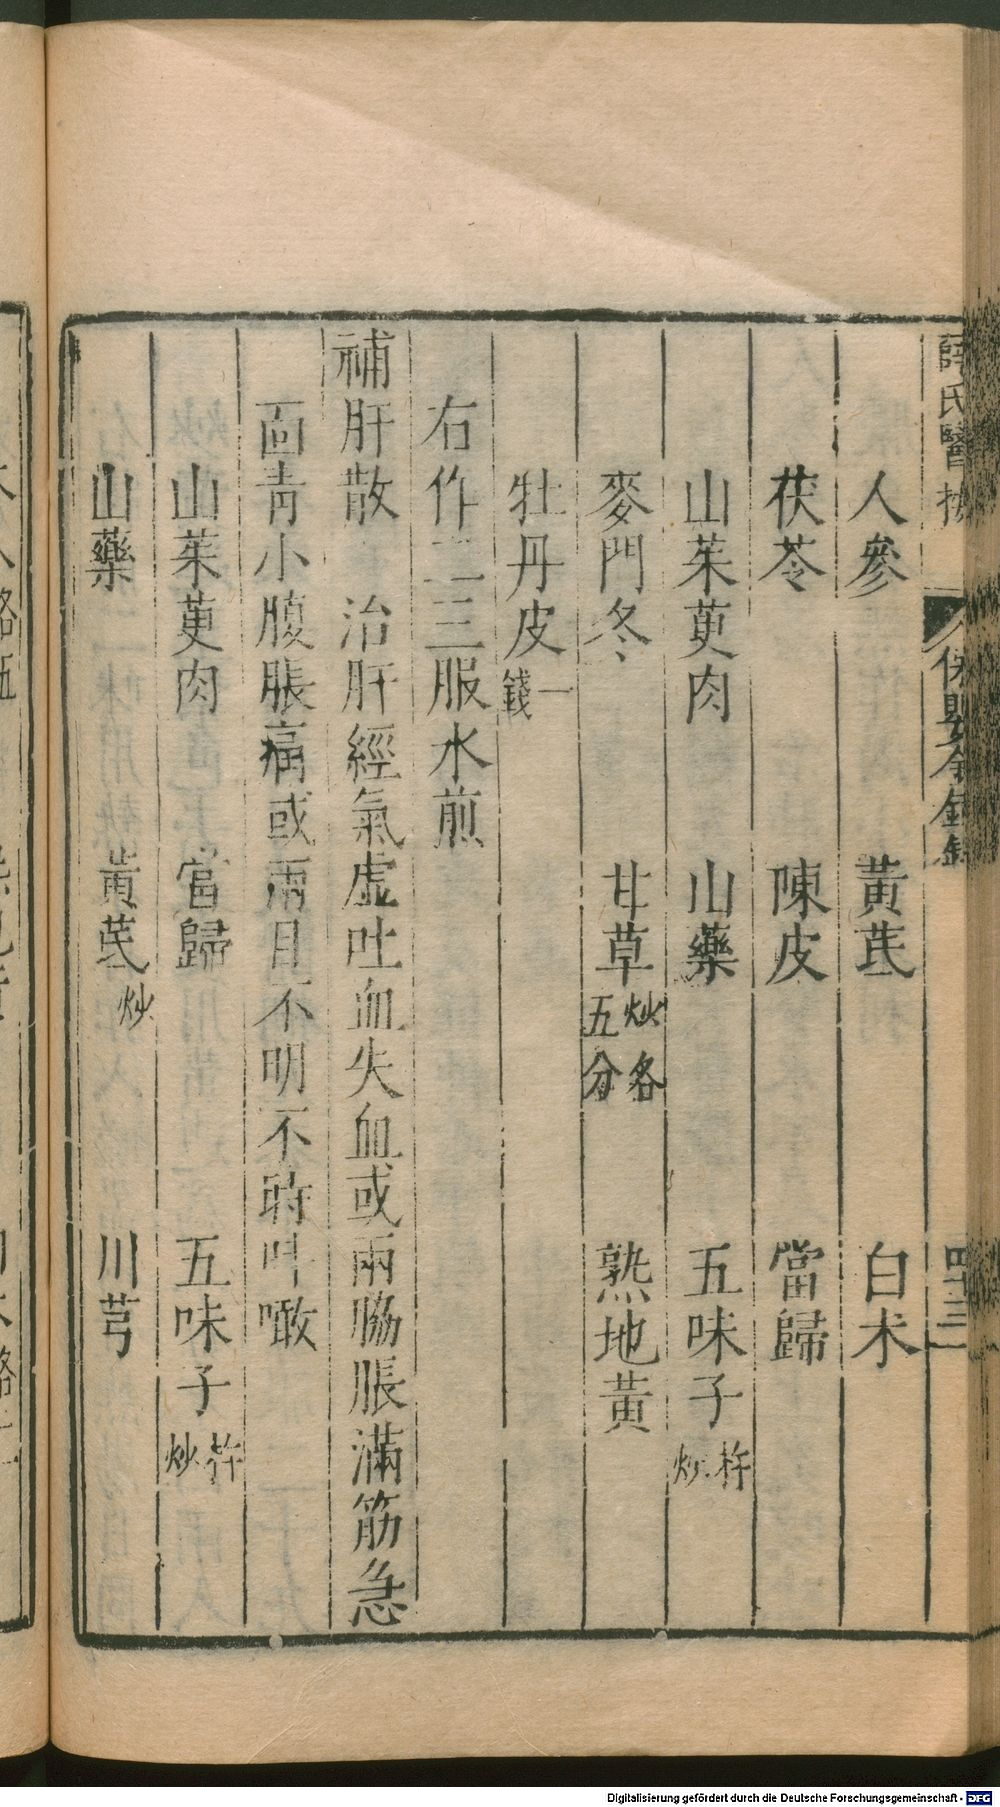 薛氏醫按 保嬰金鏡錄 四十三
人參 黃茋 白朮
茯苓 陳皮 當歸
山茱萸肉 山藥 五味子杵炒
麥門冬 甘草炒各五分 熟地黃
牡丹皮一錢
右作二三服水煎
補肝散 治肝經氣虛吐血失血或兩脇脹滿筋急
面青小腹脹痛或兩目不明不時叫噉
山茱萸肉 當歸 五味子杵炒
山藥 黃茋炒 川芎
Digitalisierung gefördert durch die Deutsche Forschungsgemeinschaft - DFG